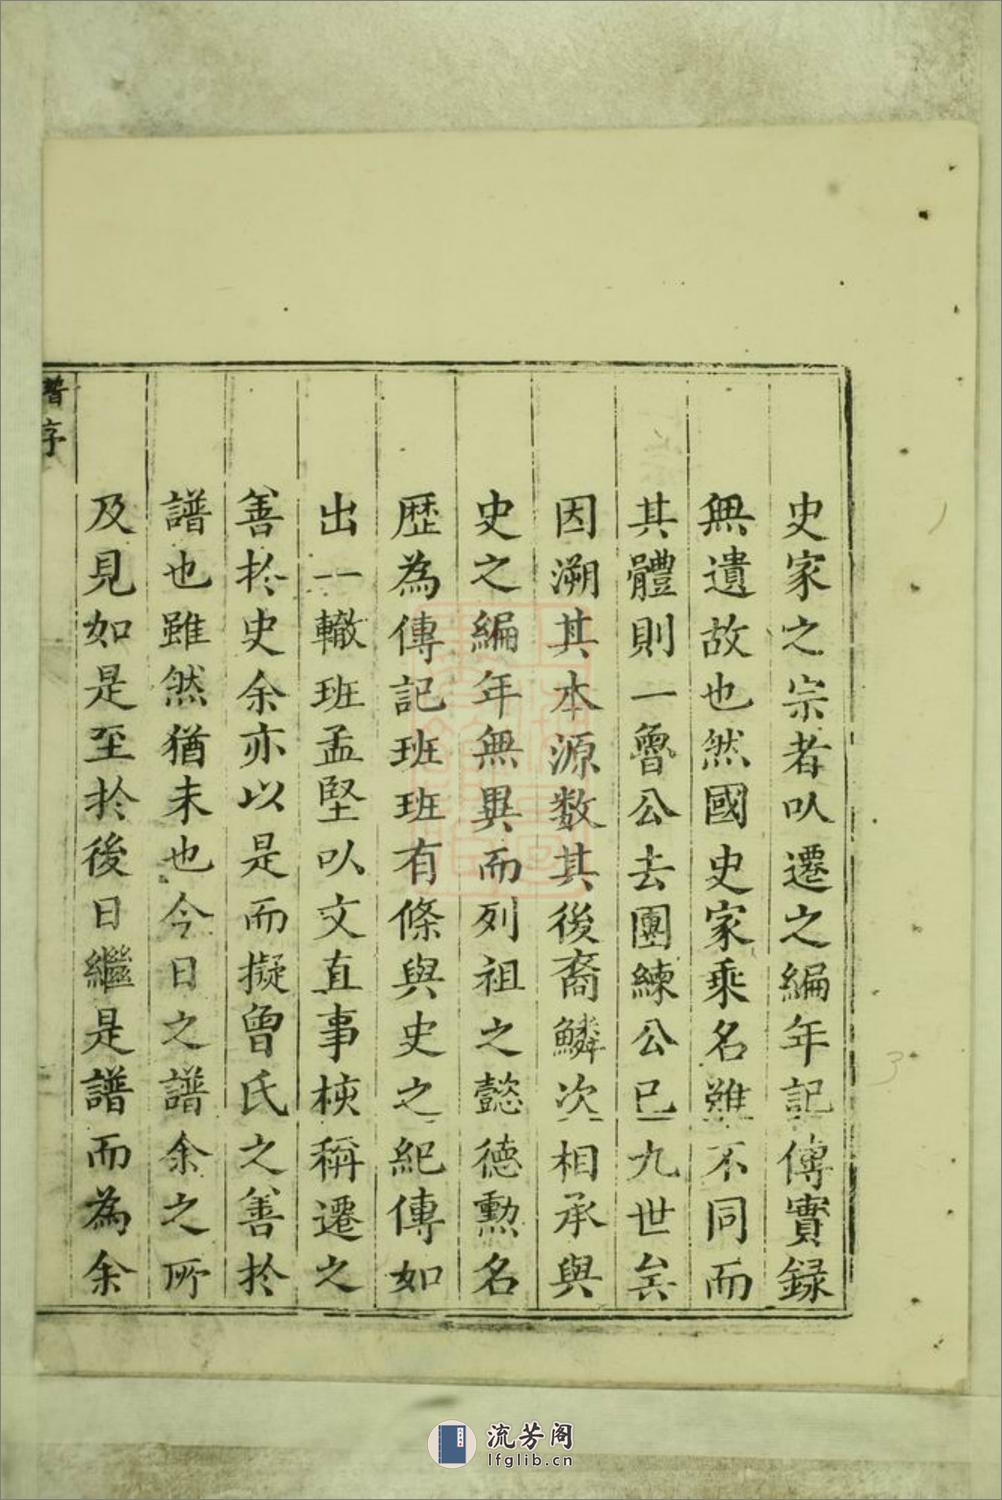 史家之宗者以遷之編年記傳實録
無遺故也然國史家乘名雖不同而
其體則一魯公去團練公已九世矣
因溯其本源数其後裔鱗次相承與
史之編年無異而列祖之懿德勲名
歴為傳記班班有條與史之紀傳如
出一轍班孟堅以文直事核稱遷之
善於史余亦以是而擬曾氏之善於
譜也雖然猶未也今日之譜余之所
及見如是至於後日繼是譜而為余
譜序
流芳阁
lfglib.cn